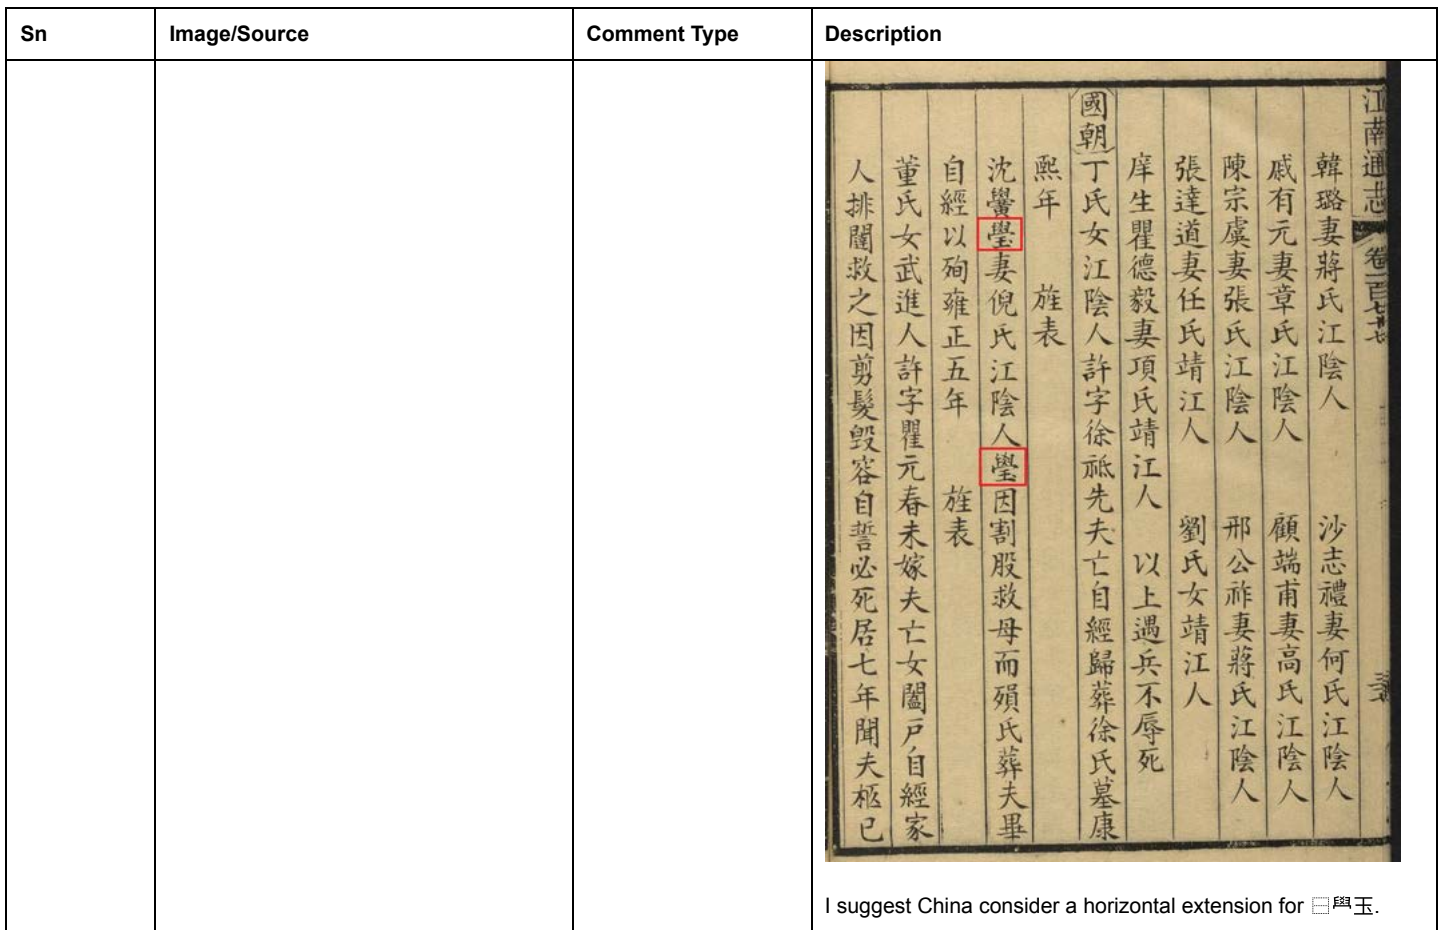 Sn Image/Source Comment Type Description
江南通志 卷一百七十七
韓璐妻蔣氏江陰人 沙志禮妻何氏江陰人
戚有元妻章氏江陰人 顧端甫妻高氏江陰人
陳宗虞妻張氏江陰人 邢公祚妻蔣氏江陰人
張達道妻任氏靖江人 劉氏女靖江人
庠生瞿德毅妻項氏靖江人 以上遇兵不辱死
國朝丁氏女江陰人許字徐祗先夫亡自經歸葬徐氏墓康
熙年 旌表
沈黌⿱𦥯玉妻倪氏江陰人⿱𦥯玉因割股救母而殞氏葬夫畢
自經以殉雍正五年 旌表
董氏女武進人許字瞿元春未嫁夫亡女闔戸自經家
人排闥救之因剪髮毀容自誓必死居七年聞夫柩已
I suggest China consider a horizontal extension for ⿱𦥯玉.